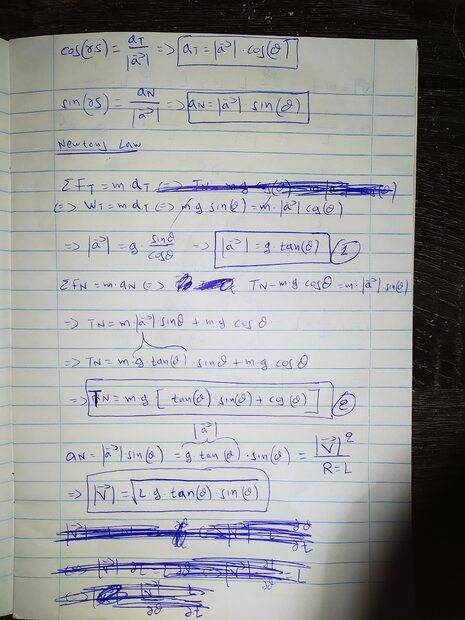 cos(θ) = a_T / |a⃗| => a_T = |a⃗| · cos(θ)
sin(θ) = a_N / |a⃗| => a_N = |a⃗| sin(θ)
Newtons Law
ΣF_T = m · a_T
<=> W_T = m · a_T <=> m g sin(θ) = m · |a⃗| cos(θ)
=> |a⃗| = g sinθ / cosθ => |a⃗| = g tan(θ) 1
ΣF_N = m · a_N <=> T_N - m · g cosθ = m · |a⃗| sin(θ)
=> T_N = m · |a⃗| · sinθ + m g cosθ
=> T_N = m · g tan(θ) · sinθ + m · g cosθ
=> T_N = m · g [ tan(θ) sin(θ) + cos(θ) ] 2
|a⃗|
a_N = |a⃗| sin(θ) = g tan(θ) · sin(θ) = |V⃗|² / R=L
=> |V⃗| = √(L g tan(θ) sin(θ))